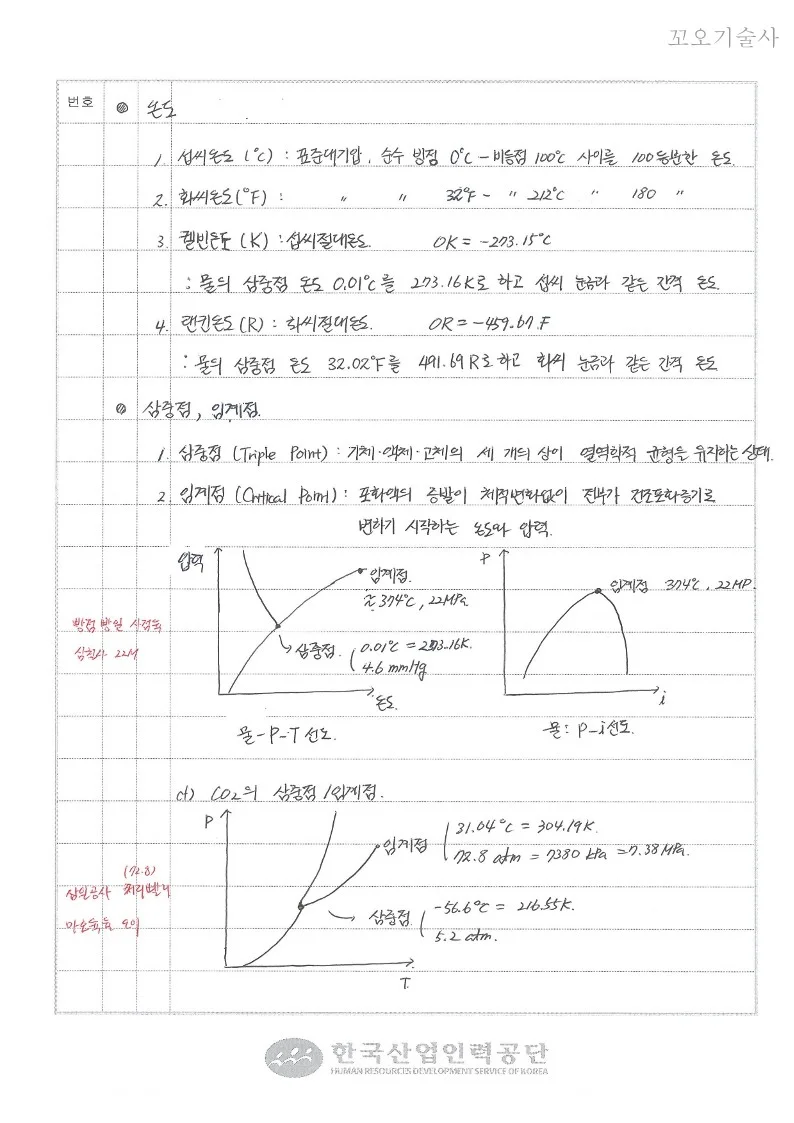 꼬오기술사
번호 ● 온도
1. 섭씨온도 (℃) : 표준대기압, 순수 빙점 0℃ - 비등점 100℃ 사이를 100등분한 온도.
2. 화씨온도(℉) : 〃 〃 32℉ - 〃 212℃ 〃 180 〃
3. 켈빈온도 (K) : 섭씨절대온도. 0K = -273.15℃
: 물의 삼중점 온도 0.01℃를 273.16K로 하고 섭씨 눈금과 같은 간격 온도.
4. 랜킨온도(R) : 화씨절대온도. 0R = -459.67 F
: 물의 삼중점 온도 32.02℉를 491.69R로 하고 화씨 눈금과 같은 간격 온도
● 삼중점, 임계점.
1. 삼중점 (Triple Point) : 기체·액체·고체의 세 개의 상이 열역학적 균형을 유지하는 상태.
2. 임계점 (Critical Point) : 포화액의 증발이 체적변화없이 전부가 건조포화증기로
변하기 시작하는 온도와 압력.
압력
임계점.
≈ 374℃, 22MPa
삼중점. 0.01℃ = 273.16K.
4.6 mmHg
온도.
물-P-T 선도.
P
임계점 374℃, 22MP.
i
물 : P-i선도.
빵점빵일
삼칠사 22M
cf) CO2의 삼중점 / 임계점.
P
임계점
31.04℃ = 304.19K.
72.8 atm = 7380 kPa = 7.38MPa.
삼중점.
-56.6℃ = 216.55K.
5.2 atm.
T
(72.8)
삼일공사
마오육육 오이
한국산업인력공단
HUMAN RESOURCES DEVELOPMENT SERVICE OF KOREA